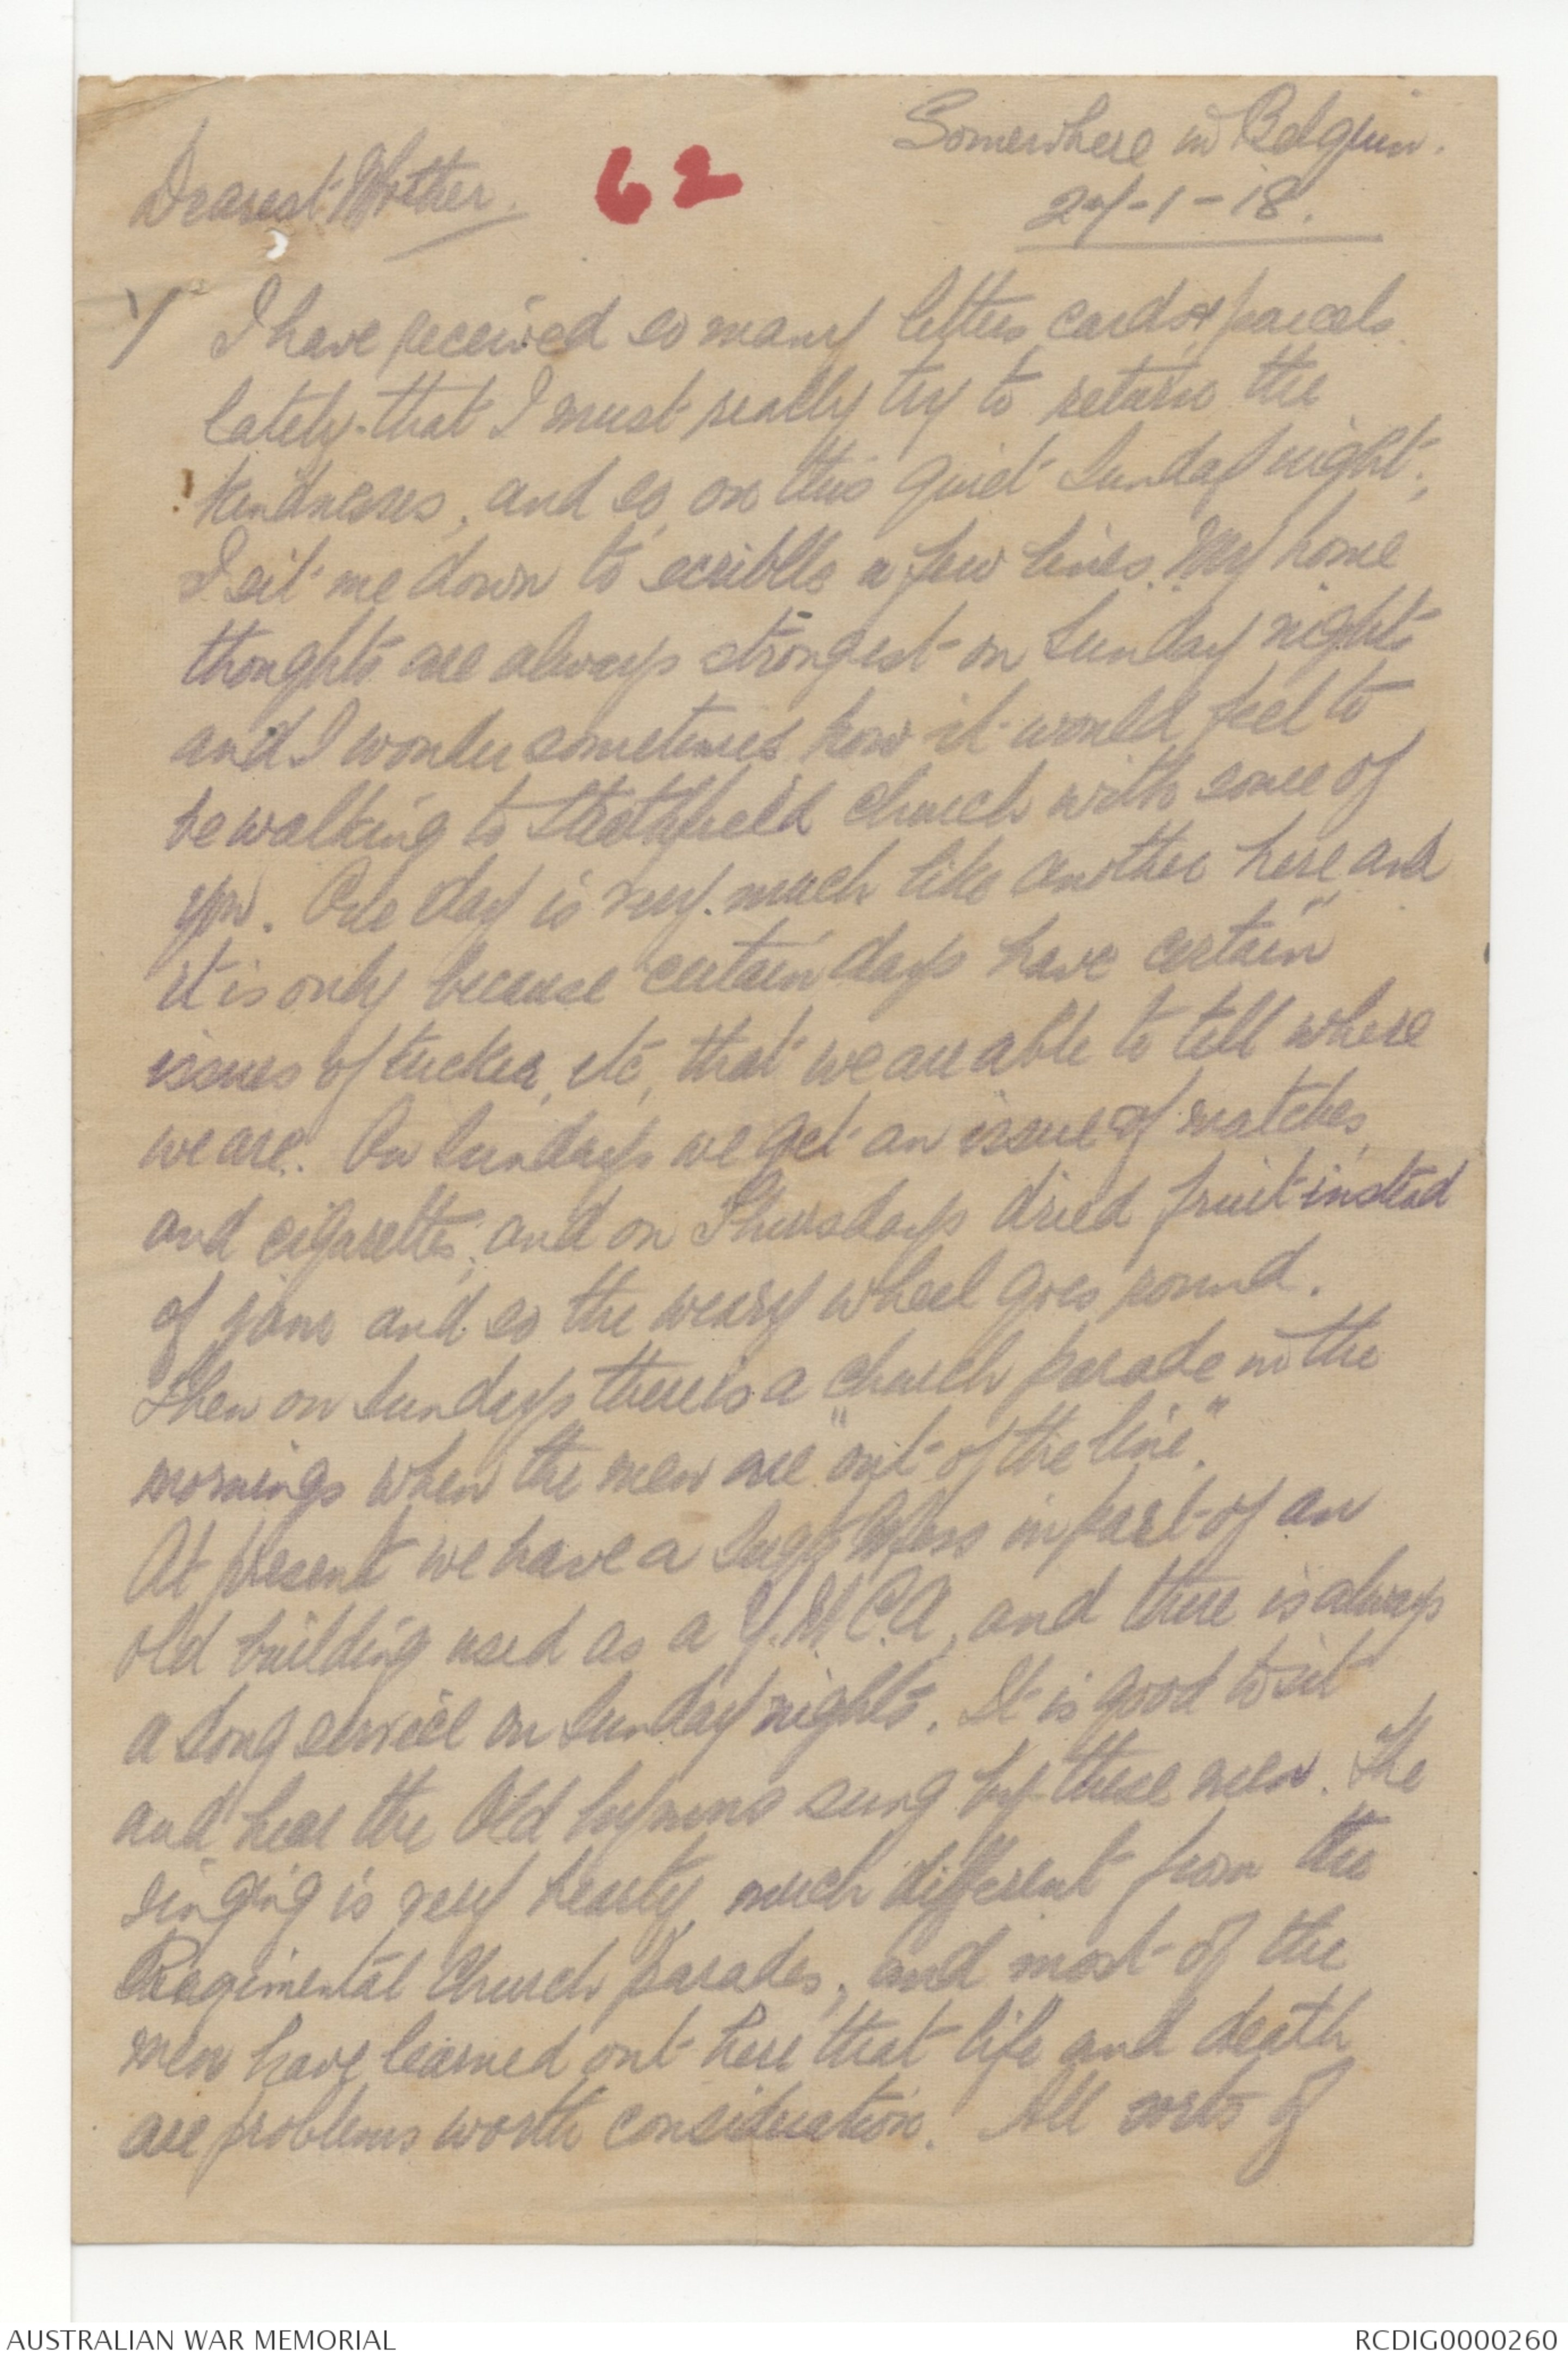 Somewhere in Belgium.
Dearest Mother.
62
24-1-18.
I have received so many letters, cards & parcels
lately that I must really try to return the
kindnesses, and so, on this quiet Sunday night,
I sit me down to scribble a few lines. My home
thoughts are always strongest on Sunday nights
and I wonder sometimes how it would feel to
be walking to Strathfield church with some of
you. One day is very much like another here, and
it is only because "certain" days have "certain"
issues of tucker, etc, that we are able to tell where
we are. On Sundays we get an issue of matches
and cigarettes, and on Thursdays dried fruit instead
of jam and so the weary wheel goes round.
Then on Sundays there is a church parade in the
mornings when the men are "out of the line".
At present we have a Sergts Mess in part of an
old building used as a Y.M.C.A, and there is always
a song service on Sunday nights. It is good to sit
and hear the Old hymns sung by these men. The
singing is very hearty, much different from the
Regimental Church parades, and most of the
men have learned out here that life and death
are problems worth consideration. All sorts of
AUSTRALIAN WAR MEMORIAL
RCDIG0000260